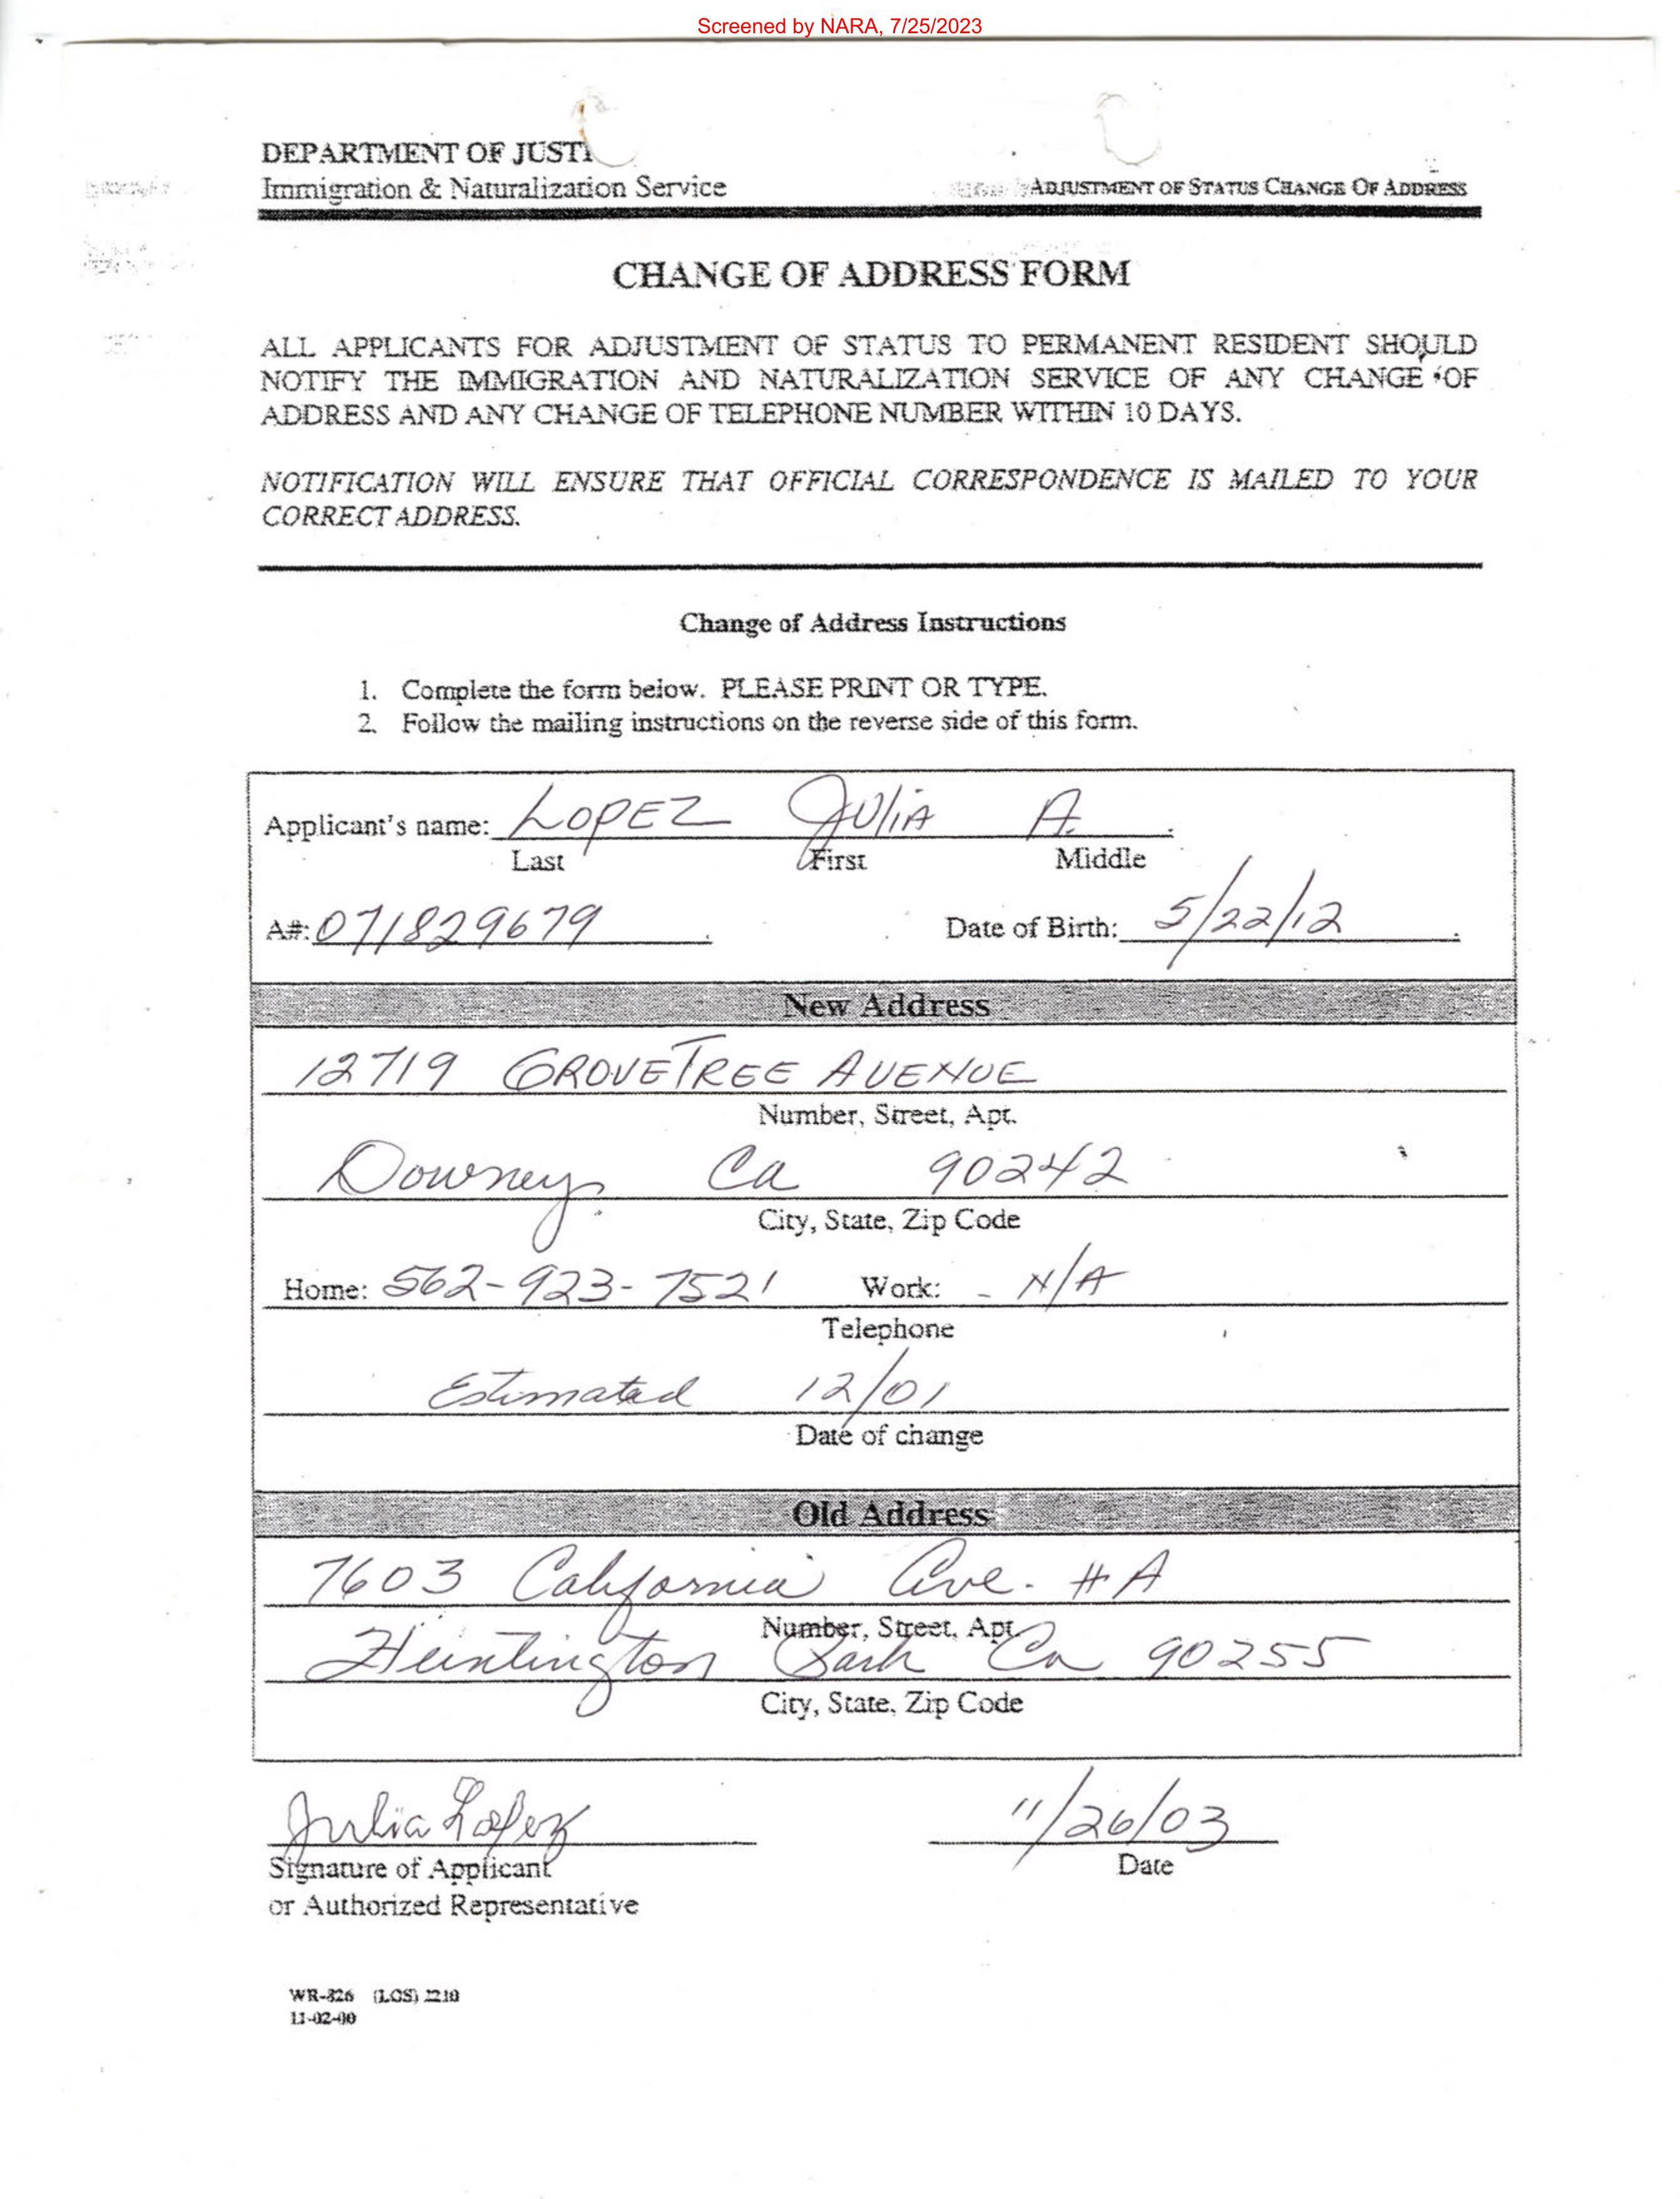 Screened by NARA, 7/25/2023
DEPARTMENT OF JUSTI
Immigration & Naturalization Service
ADJUSTMENT OF STATUS CHANGE OF ADDRESS
CHANGE OF ADDRESS FORM
ALL APPLICANTS FOR ADJUSTMENT OF STATUS TO PERMANENT RESIDENT SHOULD
NOTIFY THE IMMIGRATION AND NATURALIZATION SERVICE OF ANY CHANGE OF
ADDRESS AND ANY CHANGE OF TELEPHONE NUMBER WITHIN 10 DAYS.
NOTIFICATION WILL ENSURE THAT OFFICIAL CORRESPONDENCE IS MAILED TO YOUR
CORRECT ADDRESS.
Change of Address Instructions
1. Complete the form below. PLEASE PRINT OR TYPE.
2. Follow the mailing instructions on the reverse side of this form.
Applicant's name: LOPEZ JULIA A.
Last First Middle
A#: 071829679 Date of Birth: 5/22/12
New Address
12719 GROVETREE AVENUE
Number, Street, Apt.
Downey Ca 90242
City, State, Zip Code
Home: 562-923-7521 Work: - N/A
Telephone
Estimated 12/01
Date of change
Old Address
7603 California Ave. #A
Number, Street, Apt.
Huntington Park Ca 90255
City, State, Zip Code
Julia Lopez 11/26/03
Signature of Applicant Date
or Authorized Representative
WR-826 (LOS) 2210
11-02-00